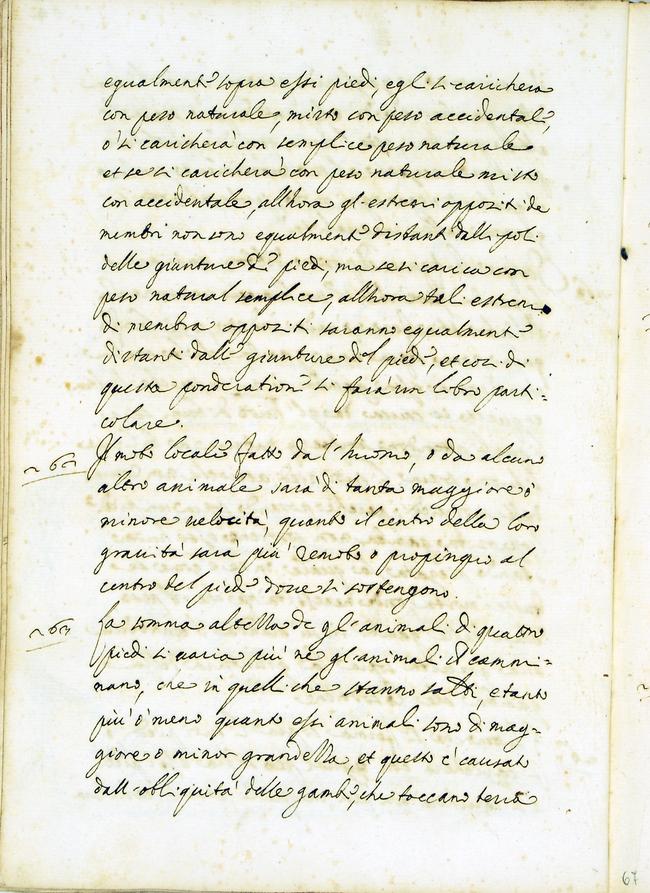 egualmente sopra essi piedi, egli si caricherà
con peso naturale, misto con peso accidentale,
o' si caricherà con semplice peso naturale
et se si caricherà con peso naturale misto
con accidentale, all'hora gl'estremi oppositi de
membri non sono egualmente distanti dalli poli
delle giunture de' piedi, ma se si carica con
peso natural semplice, all'hora tali estremi
di membra oppositi saranno egualmente
distanti dalle giunture del piede, et cosi di
questa ponderatione si farà un libro parti=
colare.
Il moto locale fatto da l'huomo, o da alcun
altro animale sarà di tanta maggiore o'
minore velocità, quanto il centro della loro
gravità sarà più remoto o propinquo al
centro del piede dove si sostengono.
La somma altezza de gl'animali di quattro
piedi si varia più ne gl'animali che cammi=
nano, che in quelli che stanno saldi, e tanto
più o' meno quanto essi animali sono di mag=
giore o minor grandezza, et questo è causato
dall'obliquità delle gambe, che toccano terra
67